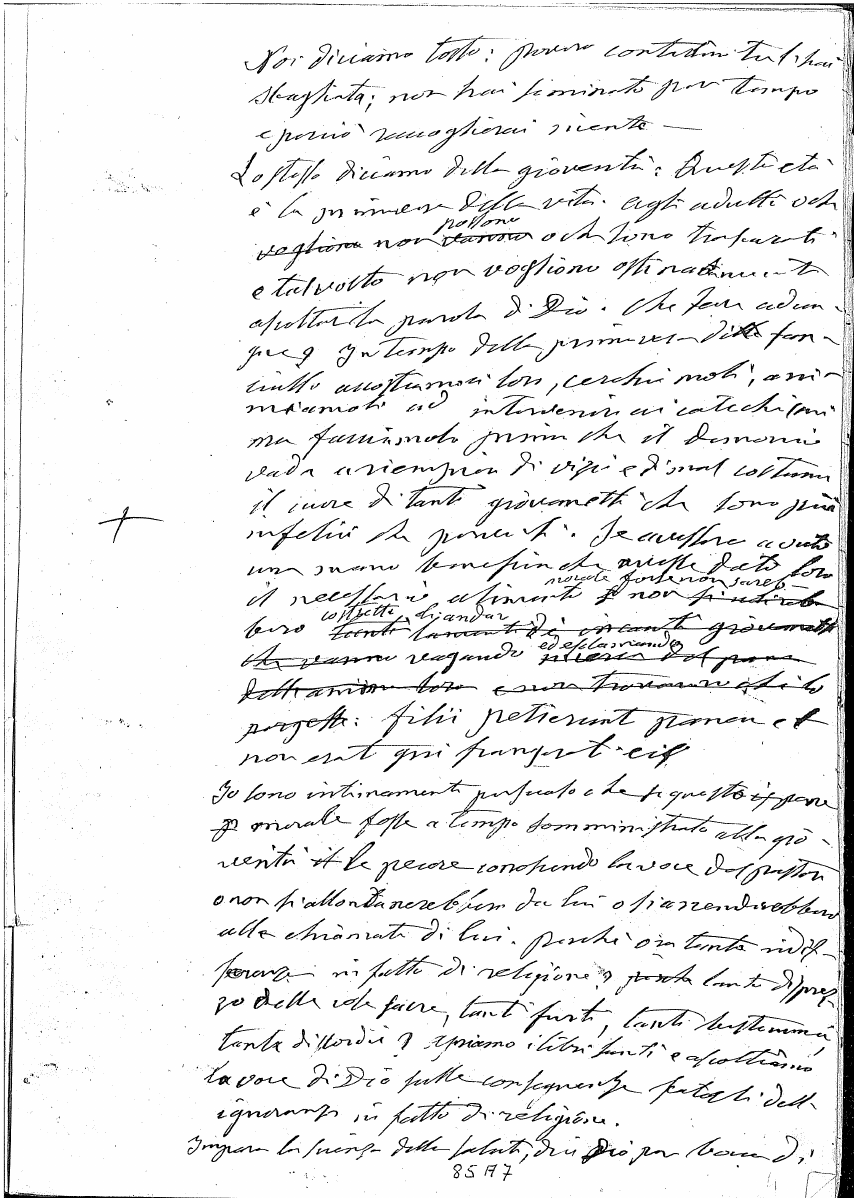 Noi diciamo tosto: povero contadin tu l'hai
sbagliata; non hai seminato per tempo
e perciò raccoglierai niente —
Lo stesso diciamo della gioventù: Questa età
è la primavera della vita. agli adulti o che
possono
vogliono non vanno o che sono trascurati
e talvolta non vogliono ostinatamente
ascoltar la parola di Dio. Che fare adun-
que? In tempo della primavera della fan-
ciullo accostiamoci loro, cerchiamoli, ani-
miamoli ad intervenire ai catechismi
ma facciamolo prima che il demonio
vada a riempire di vizi e di mal costume
il cuore di tanti giovanetti che sono più
infelici che perversi. Se avessero avuto
una mano benefica che avesse dato loro
morale forse non sareb
il necessario alimento non si udireb
costretti di andar
bero tanti lamenti di incauti giovanetti
ed esclamando
che vanno vagando del pane
dell'anima loro e non trovarono chi lo
porgesse: filii petierunt panem et
non erat qui frangeret eis
Io sono intimamente persuaso che se questo pane
morale fosse a tempo somministrato alla gio-
ventù le pecore conoscendo la voce del pastore
o non si allontanerebbero da lui o si arrenderebbero
alla chiamata di lui. perché ora tanta indif-
ferenza in fatto di religione? tanto disprez-
zo delle cose sacre, tanti furti, tante bestemmie,
tante discordie? apriamo i libri santi e ascoltiamo
la voce di Dio sulle conseguenze fatali dell'
ignoranza in fatto di religione.
Impara la scienza della salute, dice Dio per bocca di
85 A 7